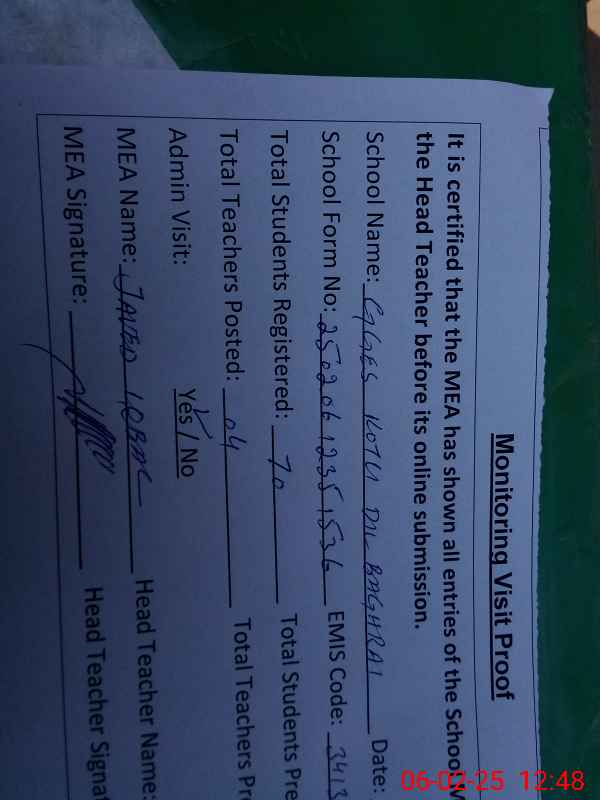 Monitoring Visit Proof
It is certified that the MEA has shown all entries of the School
the Head Teacher before its online submission.
School Name: GGES KOTLI DIL BAGHRAI Date:
School Form No: 25020612351536 EMIS Code: 3413
Total Students Registered: 70 Total Students Pre
Total Teachers Posted: 04 Total Teachers Pre
Admin Visit: Yes / No
MEA Name: JAVED IQBAL Head Teacher Name:
MEA Signature: Head Teacher Signat
06-02-25 12:48